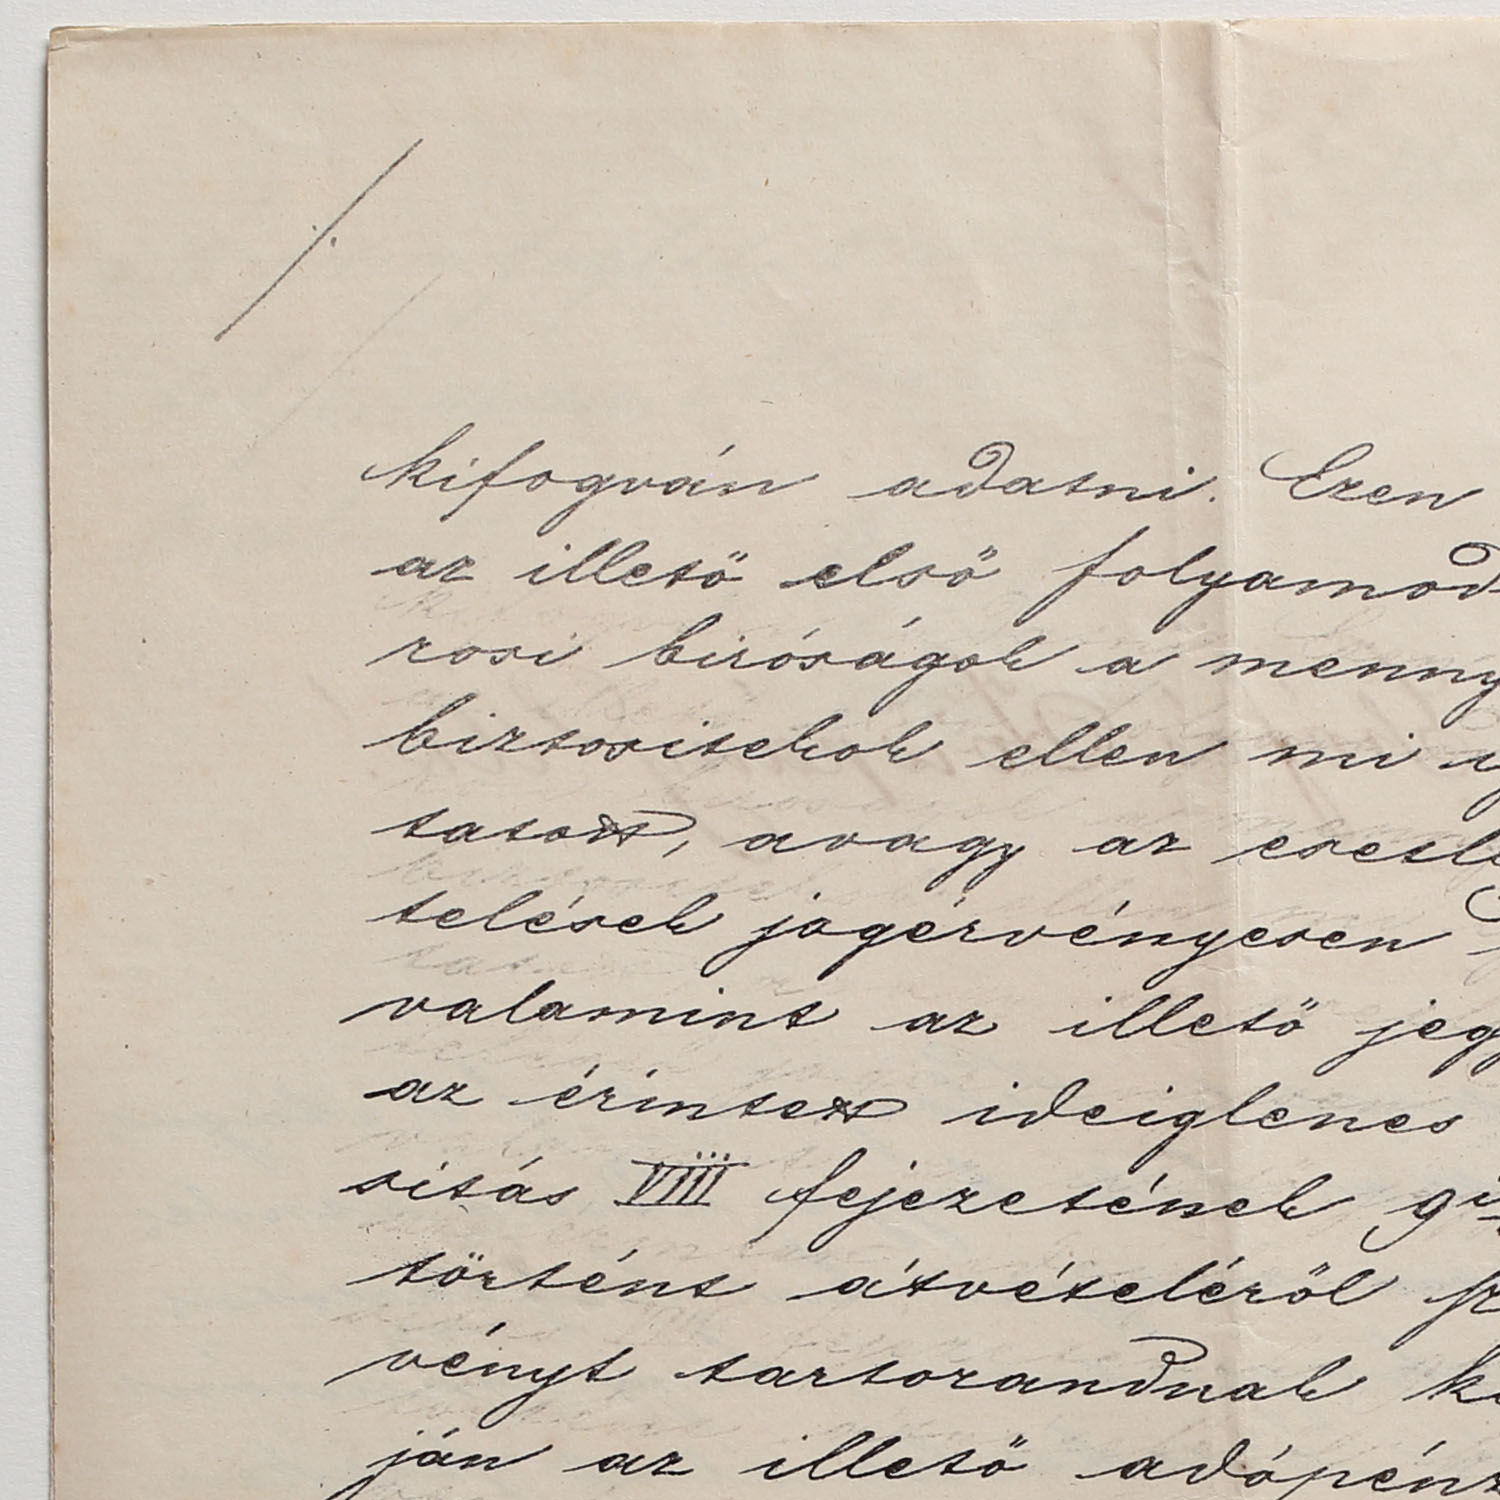 kifogván adatni. Ezen
az illető első folyamod
rosi biróságok a menny
biztositekok ellen mi
tatott, avagy az esetl
telések jogérvényesen
valamint az illető jegy
az érintett ideiglenes
sitás VIII fejezetének 9
történt átvételéről
vényt tartozandnak
ján az illető adópénz